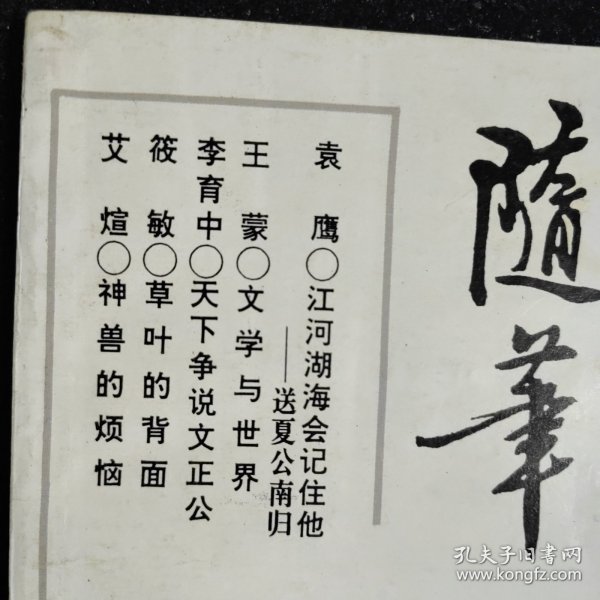 隨筆
袁鹰○江河湖海会记住他
——送夏公南归
王蒙○文学与世界
李育中○天下争说文正公
筱敏○草叶的背面
艾煊○神兽的烦恼
孔夫子旧书网
www.kongfz.com